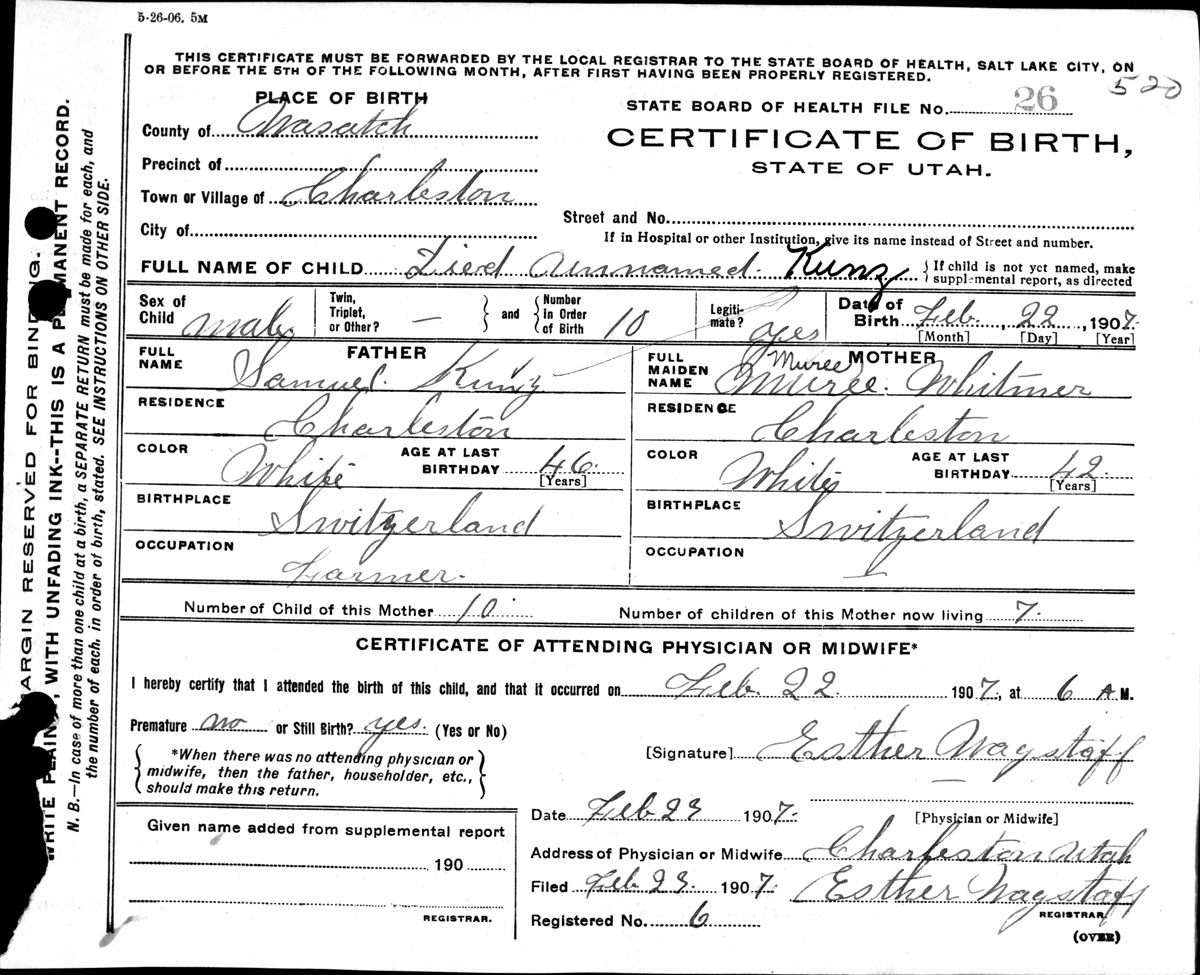 5-26-06. 5M
THIS CERTIFICATE MUST BE FORWARDED BY THE LOCAL REGISTRAR TO THE STATE BOARD OF HEALTH, SALT LAKE CITY, ON
OR BEFORE THE 5TH OF THE FOLLOWING MONTH, AFTER FIRST HAVING BEEN PROPERLY REGISTERED.
520
PLACE OF BIRTH
STATE BOARD OF HEALTH FILE No. 26
County of Wasatch
CERTIFICATE OF BIRTH,
STATE OF UTAH.
Precinct of
Town or Village of Charleston
Street and No.
City of
If in Hospital or other Institution, give its name instead of Street and number.
FULL NAME OF CHILD Died Unnamed. Kunz { If child is not yet named, make
supplemental report, as directed
Sex of Child male
Twin, Triplet, or Other? — } and { Number in Order of Birth 10
Legiti- mate? yes
Date of Birth Feb., 22, 1907.
[Month] [Day] [Year]
FATHER
FULL NAME Samuel. Kunz
RESIDENCE Charleston
COLOR White AGE AT LAST BIRTHDAY 46.
[Years]
BIRTHPLACE Switzerland
OCCUPATION Farmer.
MOTHER
FULL MAIDEN NAME Muree. Whitmer
Muree
RESIDENCE Charleston
COLOR White AGE AT LAST BIRTHDAY 42
[Years]
BIRTHPLACE Switzerland
OCCUPATION —
Number of Child of this Mother 10 Number of children of this Mother now living 7.
CERTIFICATE OF ATTENDING PHYSICIAN OR MIDWIFE*
I hereby certify that I attended the birth of this child, and that it occurred on Feb. 22. 1907., at 6 A M.
Premature no or Still Birth? yes. (Yes or No)
*When there was no attending physician or
midwife, then the father, householder, etc.,
should make this return.
[Signature] Esther Wagstaff
Given name added from supplemental report
190
REGISTRAR.
Date Feb 23 1907.
[Physician or Midwife]
Address of Physician or Midwife Charleston Utah
Filed Feb 23. 1907. Esther Wagstaff
REGISTRAR
Registered No. 6
(OVER)
ARGIN RESERVED FOR BINDING.
WRITE PLAINLY, WITH UNFADING INK--THIS IS A PERMANENT RECORD.
N. B.—In case of more than one child at a birth, a SEPARATE RETURN must be made for each, and
the number of each, in order of birth, stated. SEE INSTRUCTIONS ON OTHER SIDE.